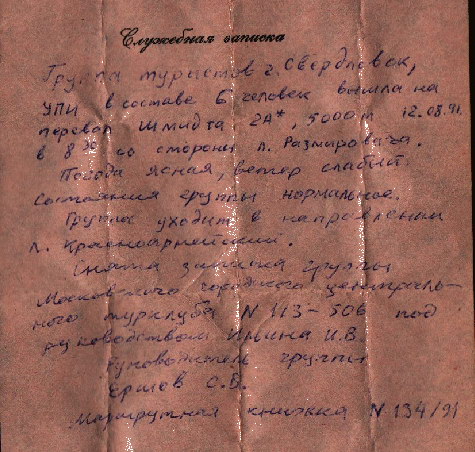 Служебная записка
Группа туристов г. Свердловск,
УПИ в составе 6 человек вышла на
перевал Шмидта 2А*, 5000 м 12.08.91.
в 8³⁰ со стороны л. Размировича.
Погода ясная, ветер слабый.
Состояния группы нормальное.
Группа уходит в направлении
л. Красноармейский.
Снята записка группы
Московского городского централь-
ного турклуба N 113-506 под
руководством Ильина И.В.
Руководитель группы
Ершов С.В.
Маршрутная книжка N 134/91